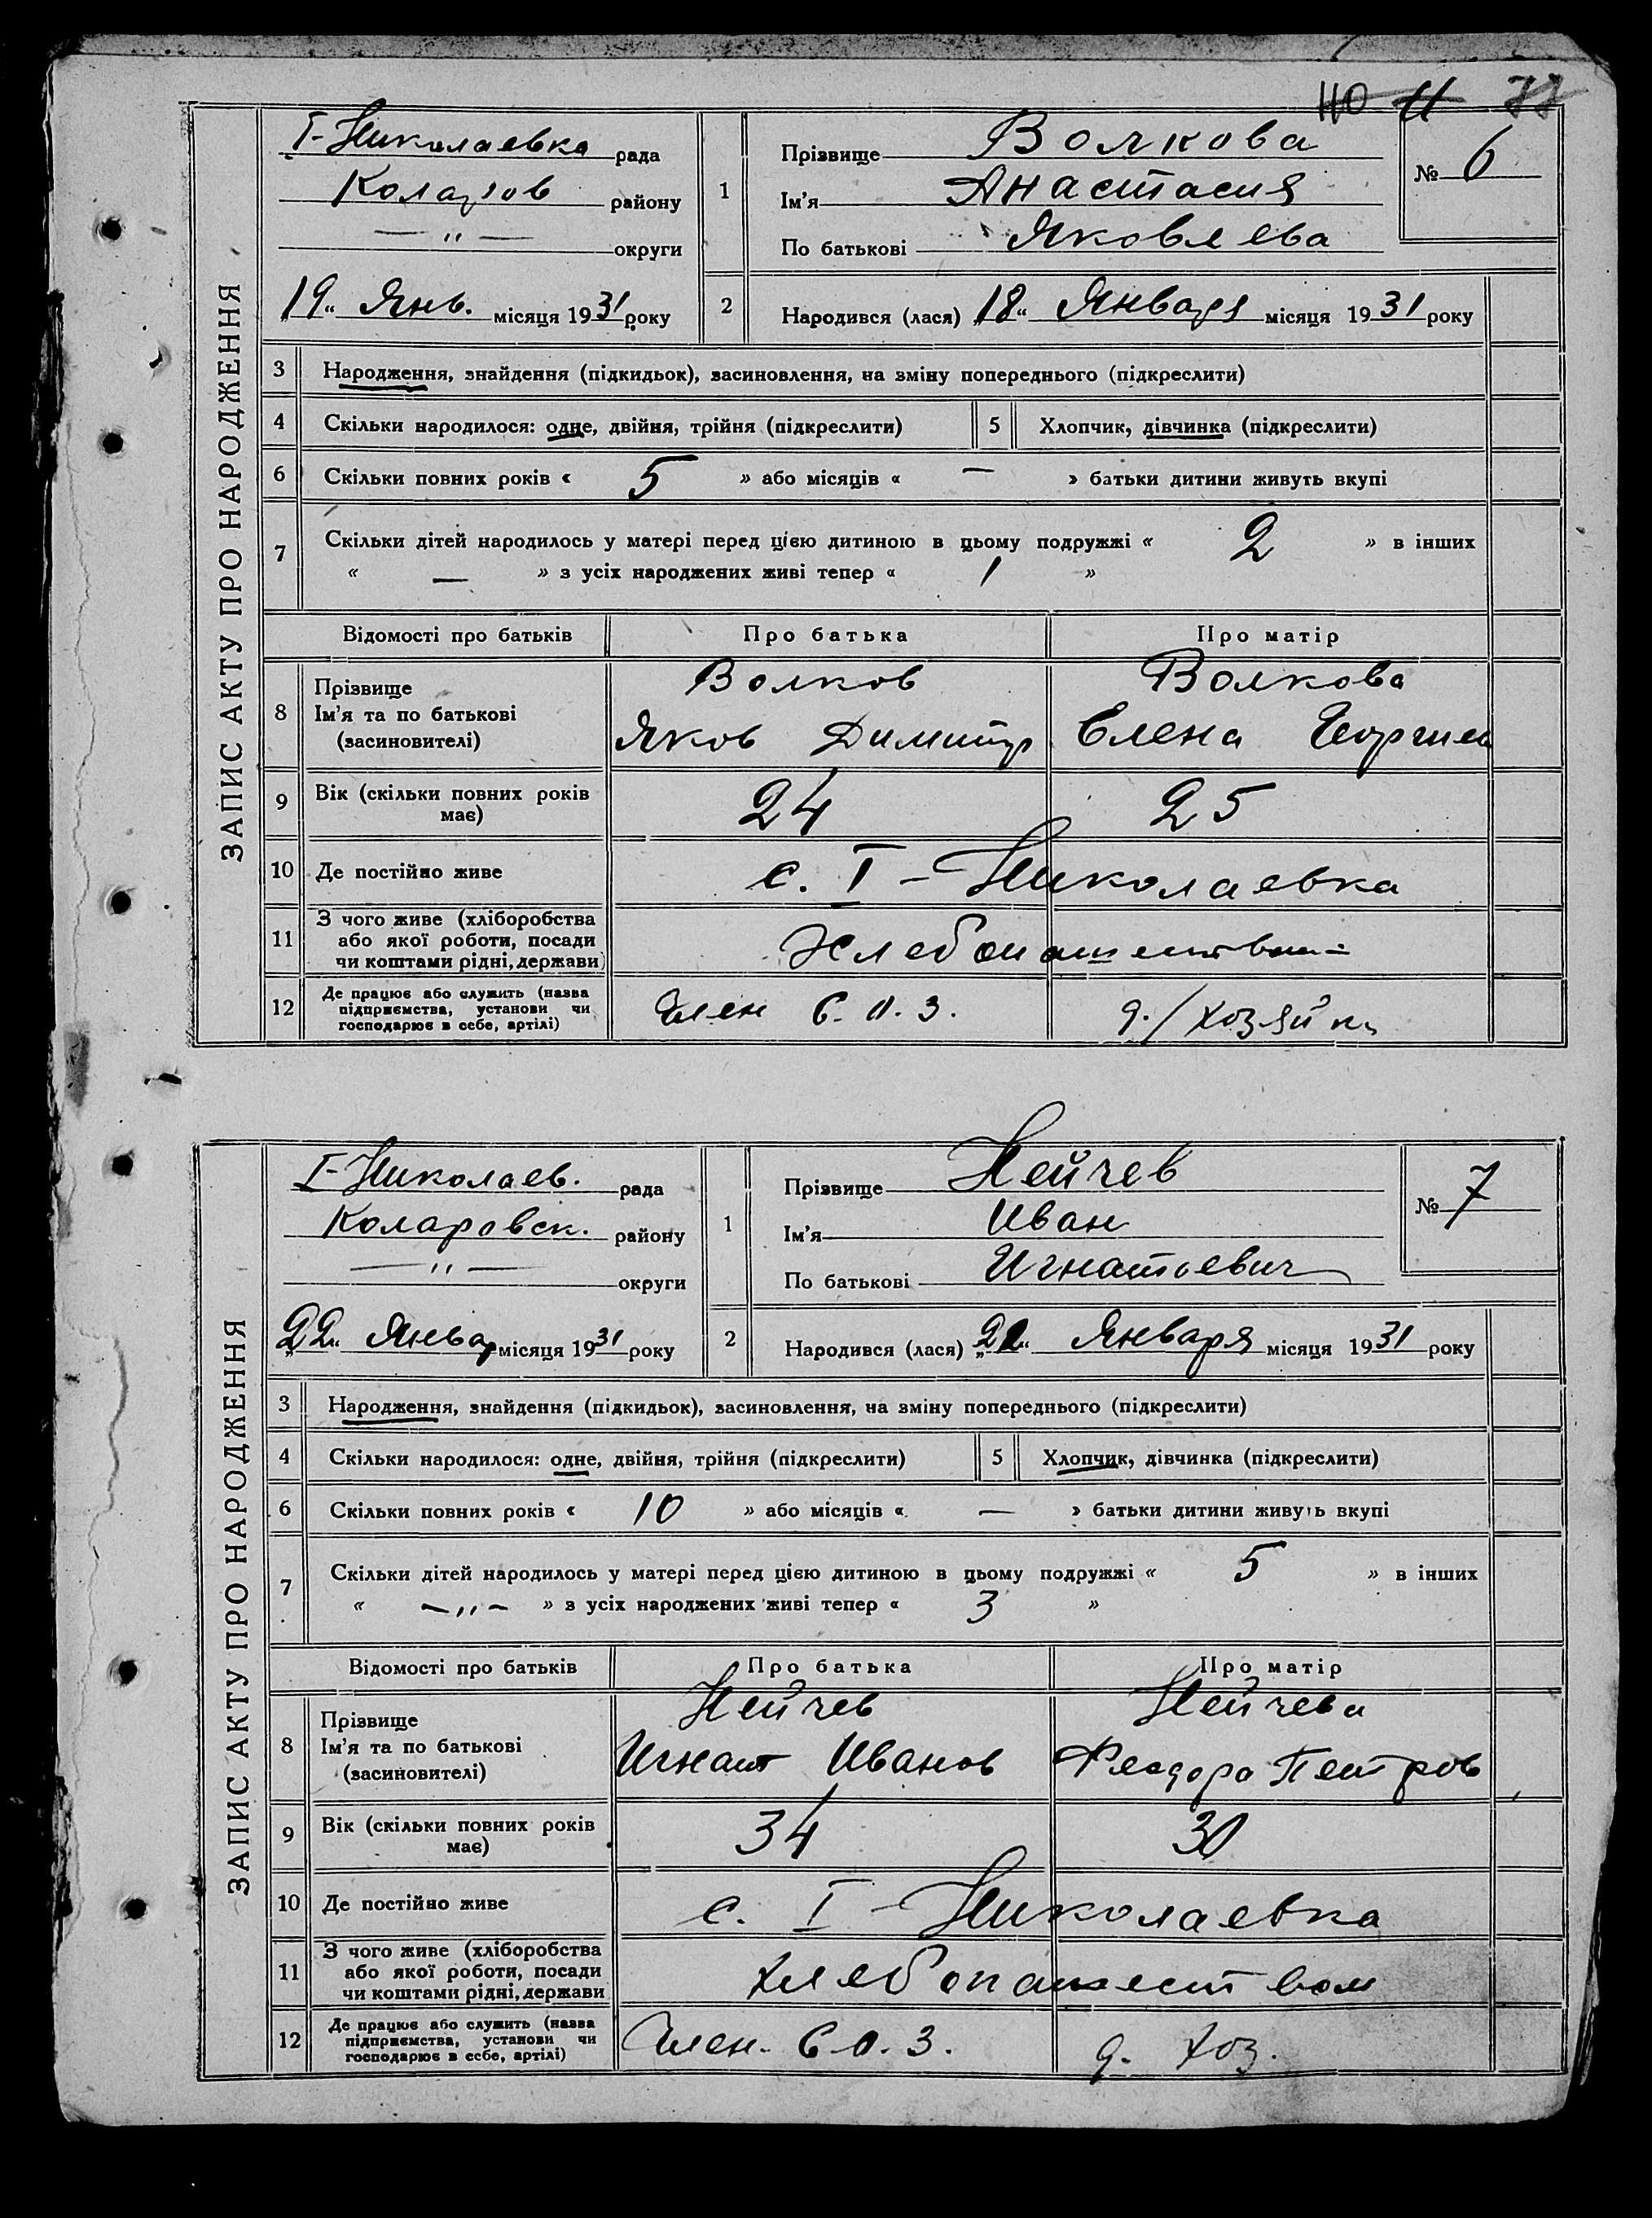 НО 11
ЗАПИС АКТУ ПРО НАРОДЖЕННЯ
I-Николаевка рада
Коларов районy
— " — округи
„19" Янв. місяця 1931 року
1 Прізвище Волкова
Ім'я Анастасия
По батькові Яковлева
№ 6
2 Народився (лася) „18" Января місяця 1931 року
3 Народження, знайдення (підкидьок), засиновлення, на зміну попереднього (підкреслити)
4 Скільки народилося: одне, двійня, трійня (підкреслити) 5 Хлопчик, дівчинка (підкреслити)
6 Скільки повних років « 5 » або місяців « — » батьки дитини живуть вкупі
7 Скільки дітей народилось у матері перед цією дитиною в цьому подружжі « 2 » в інших
« — » з усіх народжених живі тепер « 1 »
Відомості про батьків Про батька Про матір
8 Прізвище Волков Волкова
Ім'я та по батькові Яков Димитр Елена Георгиев
(засиновителі)
9 Вік (скільки повних років 24 25
має)
10 Де постійно живе с. I - Николаевка
11 З чого живе (хліборобства
або якої роботи, посади Хлебопашеством
чи коштами рідні, держави)
12 Де працює або служить (назва
підприємства, установи чи Член С.О.З. д./хозяйка
господарює в себе, артілі)
ЗАПИС АКТУ ПРО НАРОДЖЕННЯ
I-Николаев. рада
Коларовск. району
— " — округи
„22" Январ місяця 1931 року
1 Прізвище Нейчев
Ім'я Иван
По батькові Игнатьевич
№ 7
2 Народився (лася) Января місяця 1931 року
3 Народження, знайдення (підкидьок), засиновлення, на зміну попереднього (підкреслити)
4 Скільки народилося: одне, двійня, трійня (підкреслити) 5 Хлопчик, дівчинка (підкреслити)
6 Скільки повних років « 10 » або місяців « — » батьки дитини живуть вкупі
7 Скільки дітей народилось у матері перед цією дитиною в цьому подружжі « 5 » в інших
« — " — » з усіх народжених живі тепер « 3 »
Відомості про батьків Про батька Про матір
8 Прізвище Нейчев Нейчева
Ім'я та по батькові Игнат Иванов Феодора Петров
(засиновителі)
9 Вік (скільки повних років 34 30
має)
10 Де постійно живе с. I - Николаевка
11 З чого живе (хліборобства
або якої роботи, посади Хлебопашеством
чи коштами рідні, держави
12 Де працює або служить (назва
підприємства, установи чи Член. С.О.З. д. хоз.
господарює в себе, артілі)